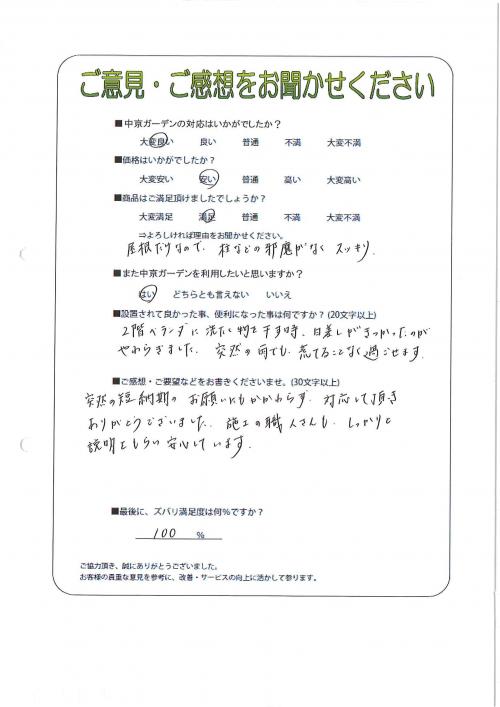 ご意見・ご感想をお聞かせください
■中京ガーデンの対応はいかがでしたか？
大変良い 良い 普通 不満 大変不満
■価格はいかがでしたか？
大変安い 安い 普通 高い 大変高い
■商品はご満足頂けましたでしょうか？
大変満足 満足 普通 不満 大変不満
⇒よろしければ理由をお聞かせください。
屋根だけなので、柱などの邪魔がなく スッキリ．
■また中京ガーデンを利用したいと思いますか？
はい どちらとも言えない いいえ
■設置されて良かった事、便利になった事は何ですか？(20文字以上)
2階ベランダに洗たく物を干す時、日差しがきつかったのが
やわらぎました．突然の雨でも、荒てることなく過ごせます．
■ご感想・ご要望などをお書きくださいませ。(30文字以上)
突然の短納期のお願いにもかかわらず、対応して頂き
ありがとうございました．施工の職人さんも、しっかりと
説明をもらい安心しています．
■最後に、ズバリ満足度は何％ですか？
100 ％
ご協力頂き、誠にありがとうございました。
お客様の貴重な意見を参考に、改善・サービスの向上に活かして参ります。